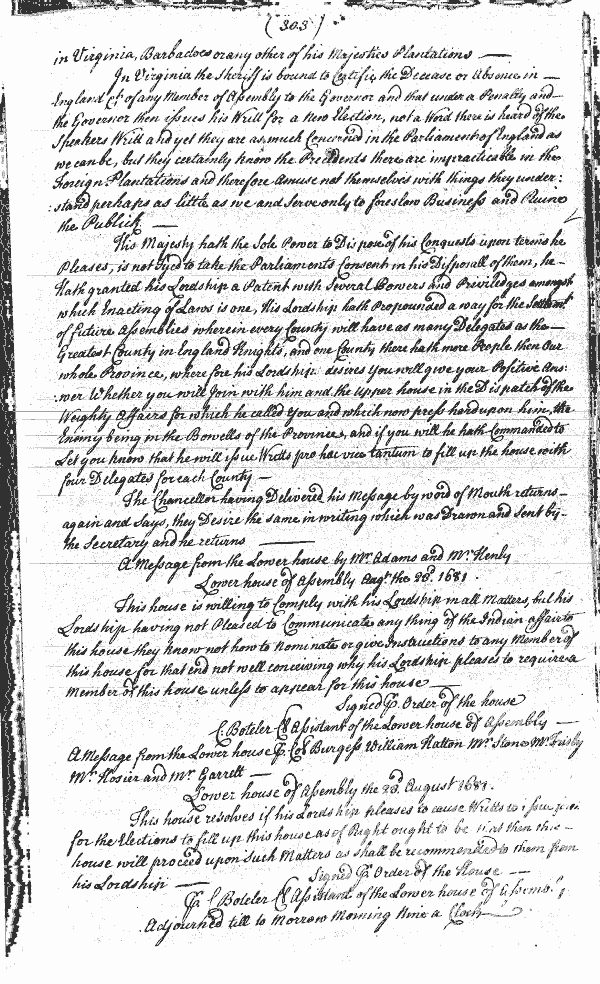 (303)
in Virginia, Barbadoes or any other of his Majesties Plantations —
In Virginia the Sheriff is bound to Certifie the Decease or Absence in —
England &ct of any Member of Assembly to the Governor and that under a Penalty and
the Governor then issues his Writt for a New Election, not a Word there is heard of the
Speakers Writt and yet they are as much Concerned in the Parliament of England as
we can be, but they certainly know the Presidents there are impracticable in the
Foreign Plantations and therefore Amuse not themselves with things they under:
:stand perhaps as little as we and Serve only to foreslow Business and Ruine
the Publick —
His Majesty hath the Sole Power to Dispose of his Conquests upon terms he
Pleases, is not tyed to take the Parliaments Consent in his Disposall of them, he —
Hath granted his Lordship a Patent with Several Powers and Priviledges amongst
which Enacting of Laws is one, His Lordship hath Propounded a way for the Settlemt
of future Assemblies wherein every County will have as many Delegates as the —
Greatest County in England Knights, and one County there hath more People then Our
whole Province, wherefore his Lordship desires You will give your Positive Ans:
:wer Whether you will Join with him and the Upper house in the Dispatch of the
Weighty Affairs for which he called You and which now press hard upon him, the
Enemy being in the Bowells of the Province, and if you will he hath Commanded to
Let you know that he will issue Writts pro hac vice tantum to fill up the house with
four Delegates for each County —
The Chancellor having Delivered his Message by word of Mouth returns —
again and Says, they Desire the same in writing which was Drawn and Sent by —
the Secretary and he returns —
A Message from the Lower house by Mr Adams and Mr Henly
Lower house of Assembly Augt the 23d. 1681.
This house is willing to Comply with his Lordship in all Matters, but his
Lordship having not Pleased to Communicate any thing of the Indian affair to
this house they know not how to nominate or give Instructions to any Member of
this house for that end not well conceiving why his Lordship pleases to require a
Member of this house unless to appear for this house —
Signed P. Order of the house
C. Boteler Cl Assistant of the Lower house of Assembly —
A Message from the Lower house P. Col Burgess William Hatton Mr Stone Mr Frisby
Mr Hosier and Mr Garrett —
Lower house of Assembly the 23d August 1681.
This house resolves if his Lordship pleases to cause Writts to issue
for the Elections to fill up this house as of Right ought to be that then this —
house will proceed upon Such Matters as shall be recommended to them from
his Lordship —
Signed P. Order of the House —
P. C Boteler Cl Assistant of the Lower house of Assembly
Adjourned till to Morrow Morning Nine a Clock